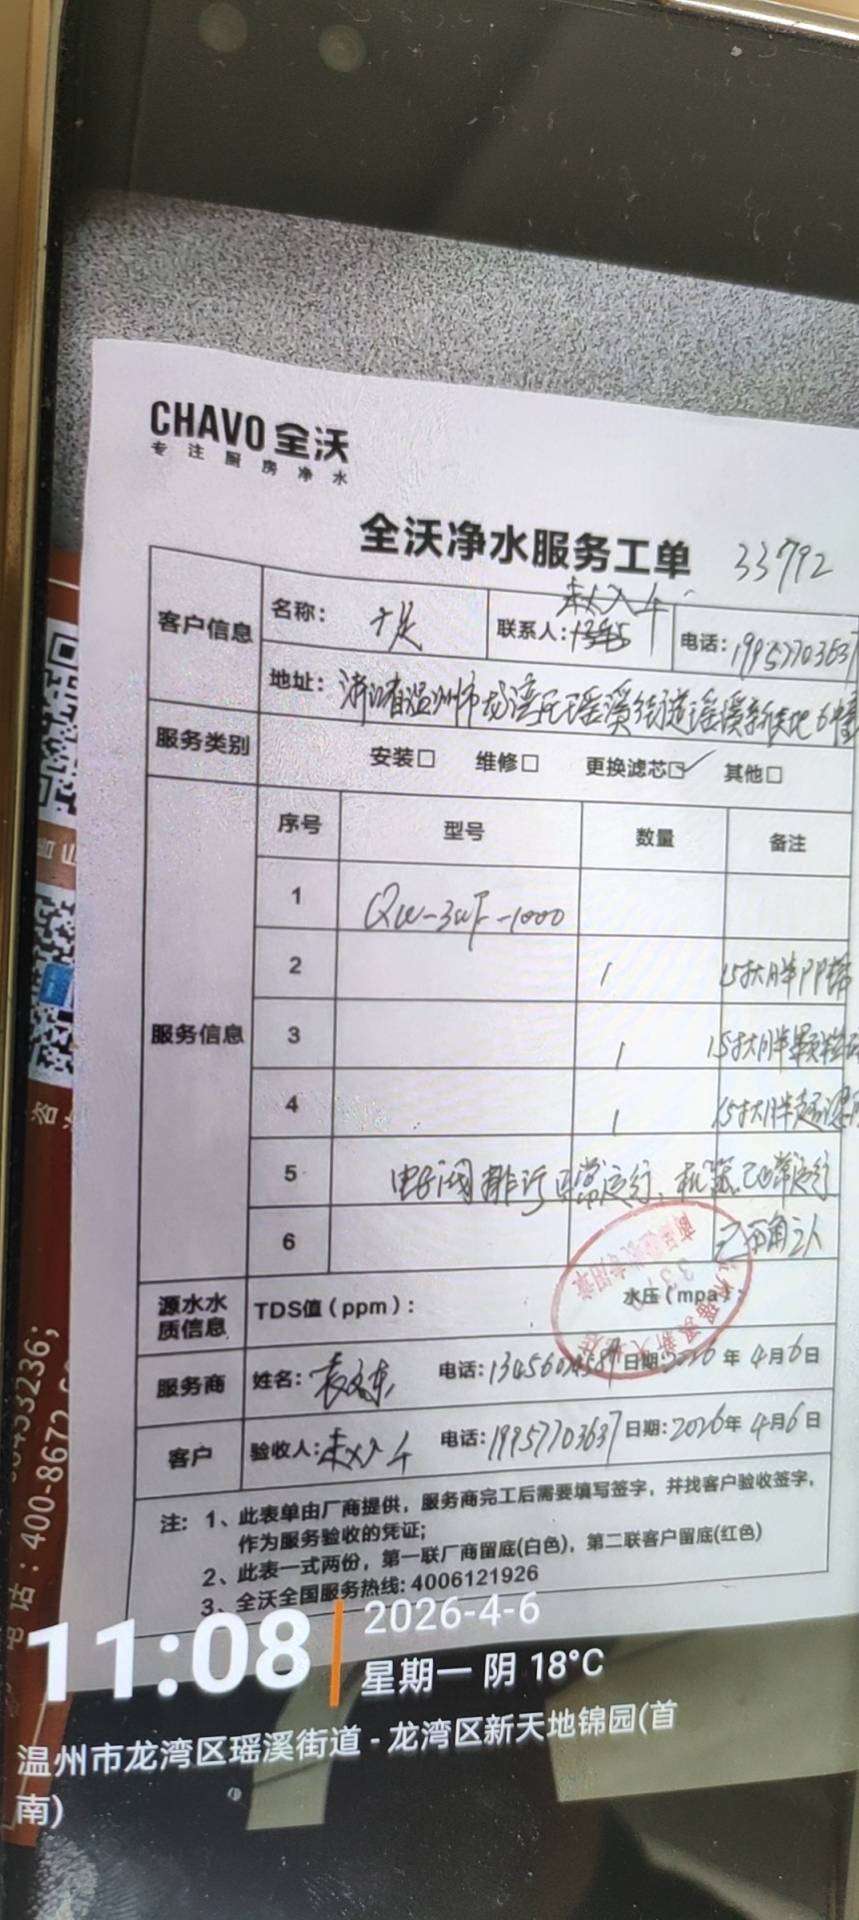 CHAVO 全沃
专注厨房净水
全沃净水服务工单 33792
客户信息 名称: 联系人: 电话: 19957703637
地址: 浙江省温州市龙湾区瑶溪街道瑶溪新天地6幢
服务类别 安装□ 维修□ 更换滤芯☑ 其他□
服务信息 序号 型号 数量 备注
1 QW-3WF-1000
2 1 15寸大胖PP棉
3 1 15寸大胖颗粒
4 1 15寸大胖
5 电子阀排污正常运行、机器已正常运行
6
源水水质信息 TDS值(ppm): 水压(mpa):
服务商 姓名: 电话: 日期: 2026年4月6日
客户 验收人: 电话: 19957703637 日期: 2026年4月6日
注: 1、此表单由厂商提供, 服务商完工后需要填写签字, 并找客户验收签字,
作为服务验收的凭证;
2、此表一式两份, 第一联厂商留底(白色), 第二联客户留底(红色)
3、全沃全国服务热线: 4006121926
11:08
2026-4-6
星期一 阴 18°C
温州市龙湾区瑶溪街道 - 龙湾区新天地锦园(首
南)